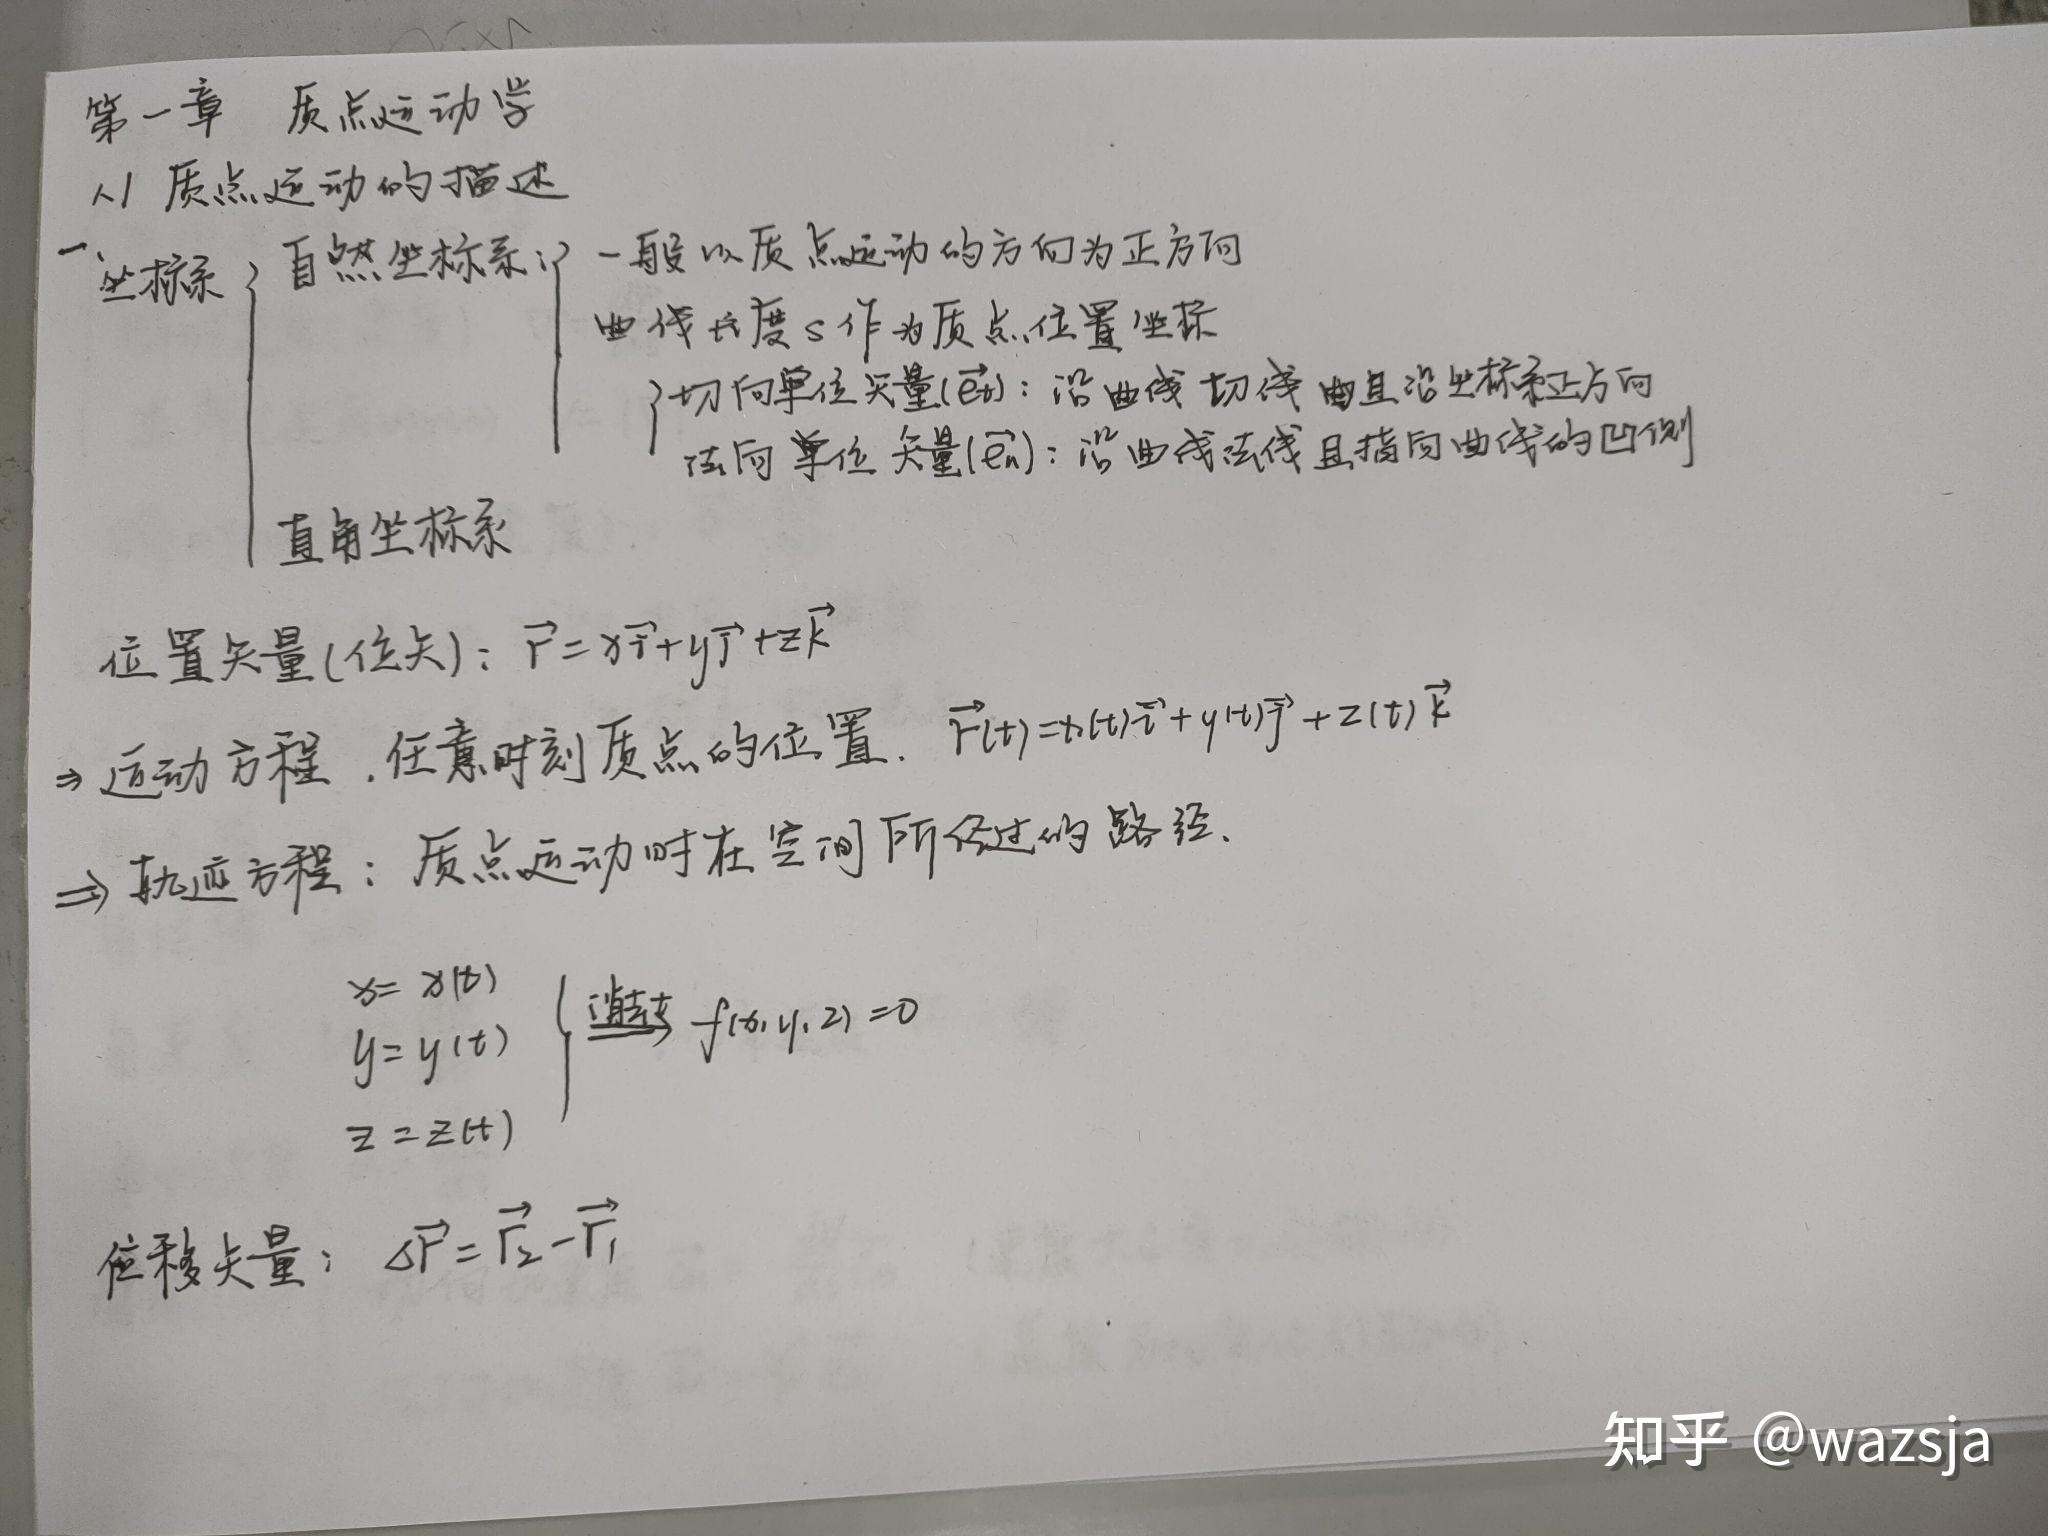 第一章 质点运动学
1.1 质点运动的描述
一、坐标系 { 自然坐标系: { 一般以质点运动的方向为正方向
曲线长度s作为质点位置坐标
{ 切向单位矢量(e⃗t): 沿曲线切线且沿坐标系正方向
法向单位矢量(e⃗n): 沿曲线法线且指向曲线的凹侧
直角坐标系
位置矢量(位矢): r⃗=xi⃗+yj⃗+zk⃗
⇒ 运动方程.任意时刻质点的位置. r⃗(t)=x(t)i⃗+y(t)j⃗+z(t)k⃗
⇒ 轨迹方程: 质点运动时在空间所经过的路径.
x=x(t)
y=y(t) } 消去t ⇒ f(x,y,z)=0
z=z(t)
位移矢量: Δr⃗=r⃗2-r⃗1
知乎 @wazsja